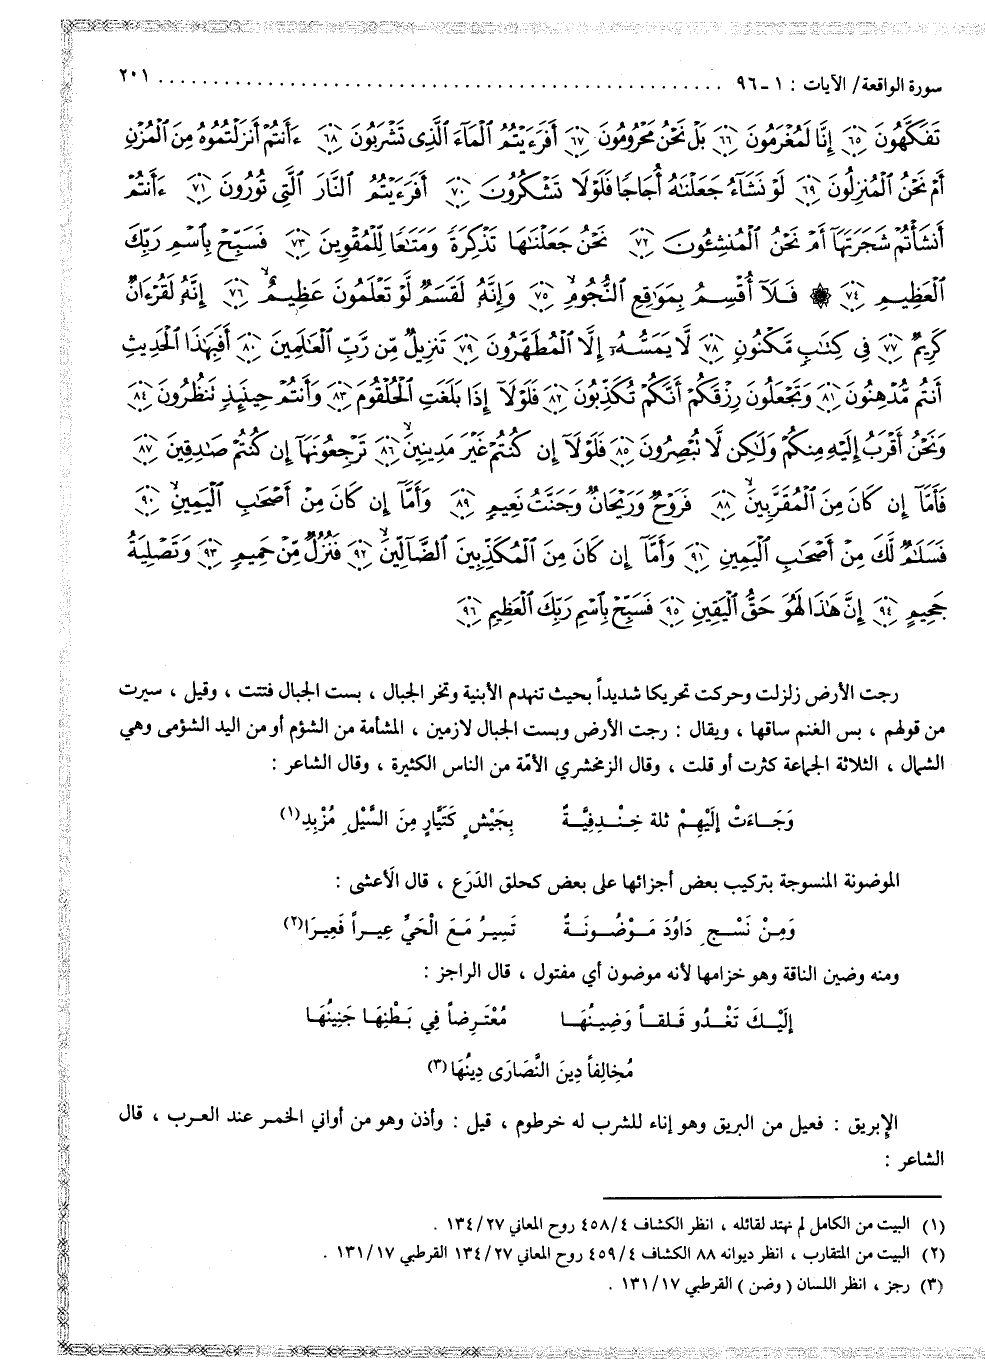 سورة الواقعة/ الآيات : ١ - ٩٦ ........................................ ٢٠١
تَفَكَّهُونَ ﴿٦٥﴾ إِنَّا لَمُغْرَمُونَ ﴿٦٦﴾ بَلْ نَحْنُ مَحْرُومُونَ ﴿٦٧﴾ أَفَرَءَيْتُمُ الْمَآءَ الَّذِى تَشْرَبُونَ ﴿٦٨﴾ ءَأَنتُمْ أَنزَلْتُمُوهُ مِنَ الْمُزْنِ
أَمْ نَحْنُ الْمُنزِلُونَ ﴿٦٩﴾ لَوْ نَشَآءُ جَعَلْنَاهُ أُجَاجًا فَلَوْلَا تَشْكُرُونَ ﴿٧٠﴾ أَفَرَءَيْتُمُ النَّارَ الَّتِى تُورُونَ ﴿٧١﴾ ءَأَنتُمْ
أَنشَأْتُمْ شَجَرَتَهَآ أَمْ نَحْنُ الْمُنشِئُونَ ﴿٧٢﴾ نَحْنُ جَعَلْنَاهَا تَذْكِرَةً وَمَتَاعًا لِّلْمُقْوِينَ ﴿٧٣﴾ فَسَبِّحْ بِاسْمِ رَبِّكَ
الْعَظِيمِ ﴿٧٤﴾ ۞ فَلَآ أُقْسِمُ بِمَوَاقِعِ النُّجُومِ ﴿٧٥﴾ وَإِنَّهُ لَقَسَمٌ لَّوْ تَعْلَمُونَ عَظِيمٌ ﴿٧٦﴾ إِنَّهُ لَقُرْءَانٌ
كَرِيمٌ ﴿٧٧﴾ فِى كِتَابٍ مَّكْنُونٍ ﴿٧٨﴾ لَّا يَمَسُّهُ إِلَّا الْمُطَهَّرُونَ ﴿٧٩﴾ تَنزِيلٌ مِّن رَّبِّ الْعَالَمِينَ ﴿٨٠﴾ أَفَبِهَذَا الْحَدِيثِ
أَنتُم مُّدْهِنُونَ ﴿٨١﴾ وَتَجْعَلُونَ رِزْقَكُمْ أَنَّكُمْ تُكَذِّبُونَ ﴿٨٢﴾ فَلَوْلَآ إِذَا بَلَغَتِ الْحُلْقُومَ ﴿٨٣﴾ وَأَنتُمْ حِينَئِذٍ تَنظُرُونَ ﴿٨٤﴾
وَنَحْنُ أَقْرَبُ إِلَيْهِ مِنكُمْ وَلَكِن لَّا تُبْصِرُونَ ﴿٨٥﴾ فَلَوْلَآ إِن كُنتُمْ غَيْرَ مَدِينِينَ ﴿٨٦﴾ تَرْجِعُونَهَآ إِن كُنتُمْ صَادِقِينَ ﴿٨٧﴾
فَأَمَّآ إِن كَانَ مِنَ الْمُقَرَّبِينَ ﴿٨٨﴾ فَرَوْحٌ وَرَيْحَانٌ وَجَنَّتُ نَعِيمٍ ﴿٨٩﴾ وَأَمَّآ إِن كَانَ مِنْ أَصْحَابِ الْيَمِينِ ﴿٩٠﴾
فَسَلَامٌ لَّكَ مِنْ أَصْحَابِ الْيَمِينِ ﴿٩١﴾ وَأَمَّآ إِن كَانَ مِنَ الْمُكَذِّبِينَ الضَّآلِّينَ ﴿٩٢﴾ فَنُزُلٌ مِّنْ حَمِيمٍ ﴿٩٣﴾ وَتَصْلِيَةُ
جَحِيمٍ ﴿٩٤﴾ إِنَّ هَذَا لَهُوَ حَقُّ الْيَقِينِ ﴿٩٥﴾ فَسَبِّحْ بِاسْمِ رَبِّكَ الْعَظِيمِ ﴿٩٦﴾
رجت الأرض زلزلت وحركت تحريكا شديداً بحيث تنهدم الأبنية وتخر الجبال ، بست الجبال فتتت ، وقيل ، سيرت
من قولهم ، بس الغنم ساقها ، ويقال : رجت الأرض وبست الجبال لازمين ، المشأمة من الشؤم أو من اليد الشؤمى وهي
الشمال ، الثلاثة الجماعة كثرت أو قلت ، وقال الزمخشري الأمّة من الناس الكثيرة ، وقال الشاعر :
وَجَـاءَتْ إِلَيْهِمْ ثلة خِنْـدِفِيَّـةٌ    بِجَيْشٍ كَتَيَّارٍ مِنَ السَّيْلِ مُزْبِدِ(١)
الموضونة المنسوجة بتركيب بعض أجزائها على بعض كحلق الدَرَع ، قال الأعشى :
وَمِنْ نَسْـجِ دَاوُدَ مَـوْضُـونَـةٌ    تَسِيرُ مَعَ الْحَيِّ عِيـراً فَعِيرَا(٢)
ومنه وضين الناقة وهو خزامها لأنه موضون أي مفتول ، قال الراجز :
إِلَيْـكَ تَغْـدُو قَـلقـاً وَضِيـنُهَـا    مُعْتَـرِضاً فِي بَـطْنِهَا جَنِينُهَـا
مُخَالِفاً دِينَ النَّصَارَى دِينُهَا(٣)
الإبريق : فعيل من البريق وهو إناء للشرب له خرطوم ، قيل : وأذن وهو من أواني الخمـر عند العـرب ، قال
الشاعر :
(١) البيت من الكامل لم نهتد لقائله ، انظر الكشاف ٤٥٨/٤ روح المعاني ١٣٤/٢٧ .
(٢) البيت من المتقارب ، انظر ديوانه ٨٨ الكشاف ٤٥٩/٤ روح المعاني ١٣٤/٢٧ القرطبي ١٣١/١٧ .
(٣) رجز ، انظر اللسان ( وضن ) القرطبي ١٣١/١٧ .